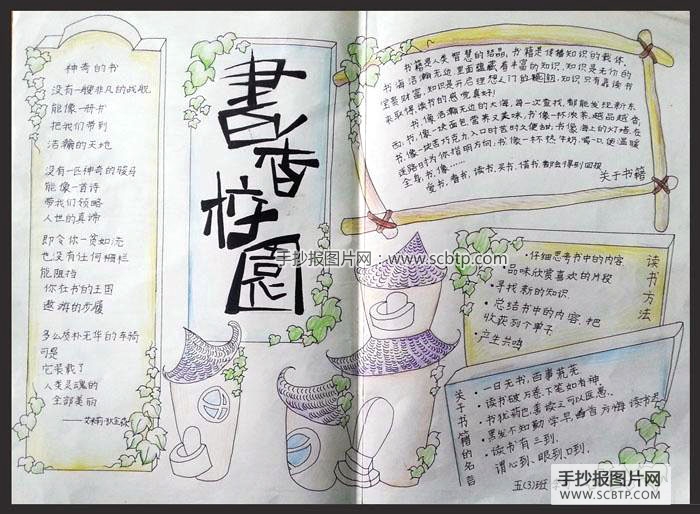 神奇的书
没有一艘非凡的战舰
能像一册书
把我们带到
浩瀚的天地
没有一匹神奇的骏马
能像一首诗
带我们领略
人世的真谛
即令你一贫如洗
也没有任何栅栏
能阻挡
你在书的王国
遨游的步履
多么质朴无华的车骑
可是
它装载了
人类灵魂的
全部美丽
書香校園
手抄报图片网:www.scbtp.com
书籍是人类智慧的结晶,书籍是传播知识的载体,
书海浩瀚无边,里面蕴藏着丰富的知识,知识是无价的
宝贵财富,知识是开启理想大门的钥匙,知识只有靠读书
来取得,读书的感觉真好!
书,像浩瀚无边的大海,每一次查找,都能发现新东
西,书,像一块面包营养又美味,书像一杯浓茶,越品越香,
书,像一块苦巧克力入口时苦时久便甜,书像海上的灯塔,在
迷路时为你指明方向,书,像一杯热牛奶,喝一口便温暖
全身,书,像……
爱书,看书,读书,买书,借书,都会得到回报
关于书籍
读书方法
·仔细思考书中的内容
·品味欣赏喜欢的片段
·寻找新的知识
·总结书中的内容,把
收获列个单子
·产生共鸣
关于书籍的名言
·一日无书,百事荒芜
·读书破万卷下笔如有神
·书犹药也,善读之可以医愚
·黑发不知勤学早,白首方悔读书迟
·读书有三到,
谓心到、眼到、口到.
五(3)班
手抄报图片网
WWW.SCBTP.COM